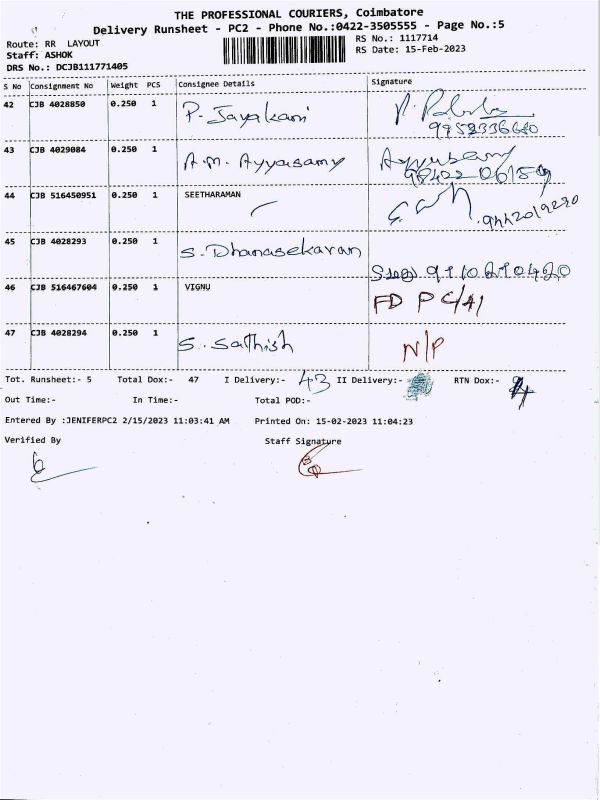 THE PROFESSIONAL COURIERS, Coimbatore
Delivery Runsheet - PC2 - Phone No.:0422-3505555 - Page No.:5
Route: RR LAYOUT
RS No.: 1117714
Staff: ASHOK
RS Date: 15-Feb-2023
DRS No.: DCJB111771405
S No Consignment No Weight PCS Consignee Details Signature
42 CJB 4028850 0.250 1 P. Jayakani
9952336640
43 CJB 4029084 0.250 1 A.M. Ayyasamy Ayyasamy
44 CJB 516450951 0.250 1 SEETHARAMAN
45 CJB 4028293 0.250 1 S. Dhanasekaran
46 CJB 516467604 0.250 1 VIGNU
FD PC/A1
47 CJB 4028294 0.250 1 S. Sathish N/P
Tot. Runsheet:- 5 Total Dox:- 47 I Delivery:- 43 II Delivery:- RTN Dox:- 4
Out Time:- In Time:- Total POD:-
Entered By :JENIFERPC2 2/15/2023 11:03:41 AM Printed On: 15-02-2023 11:04:23
Verified By Staff Signature